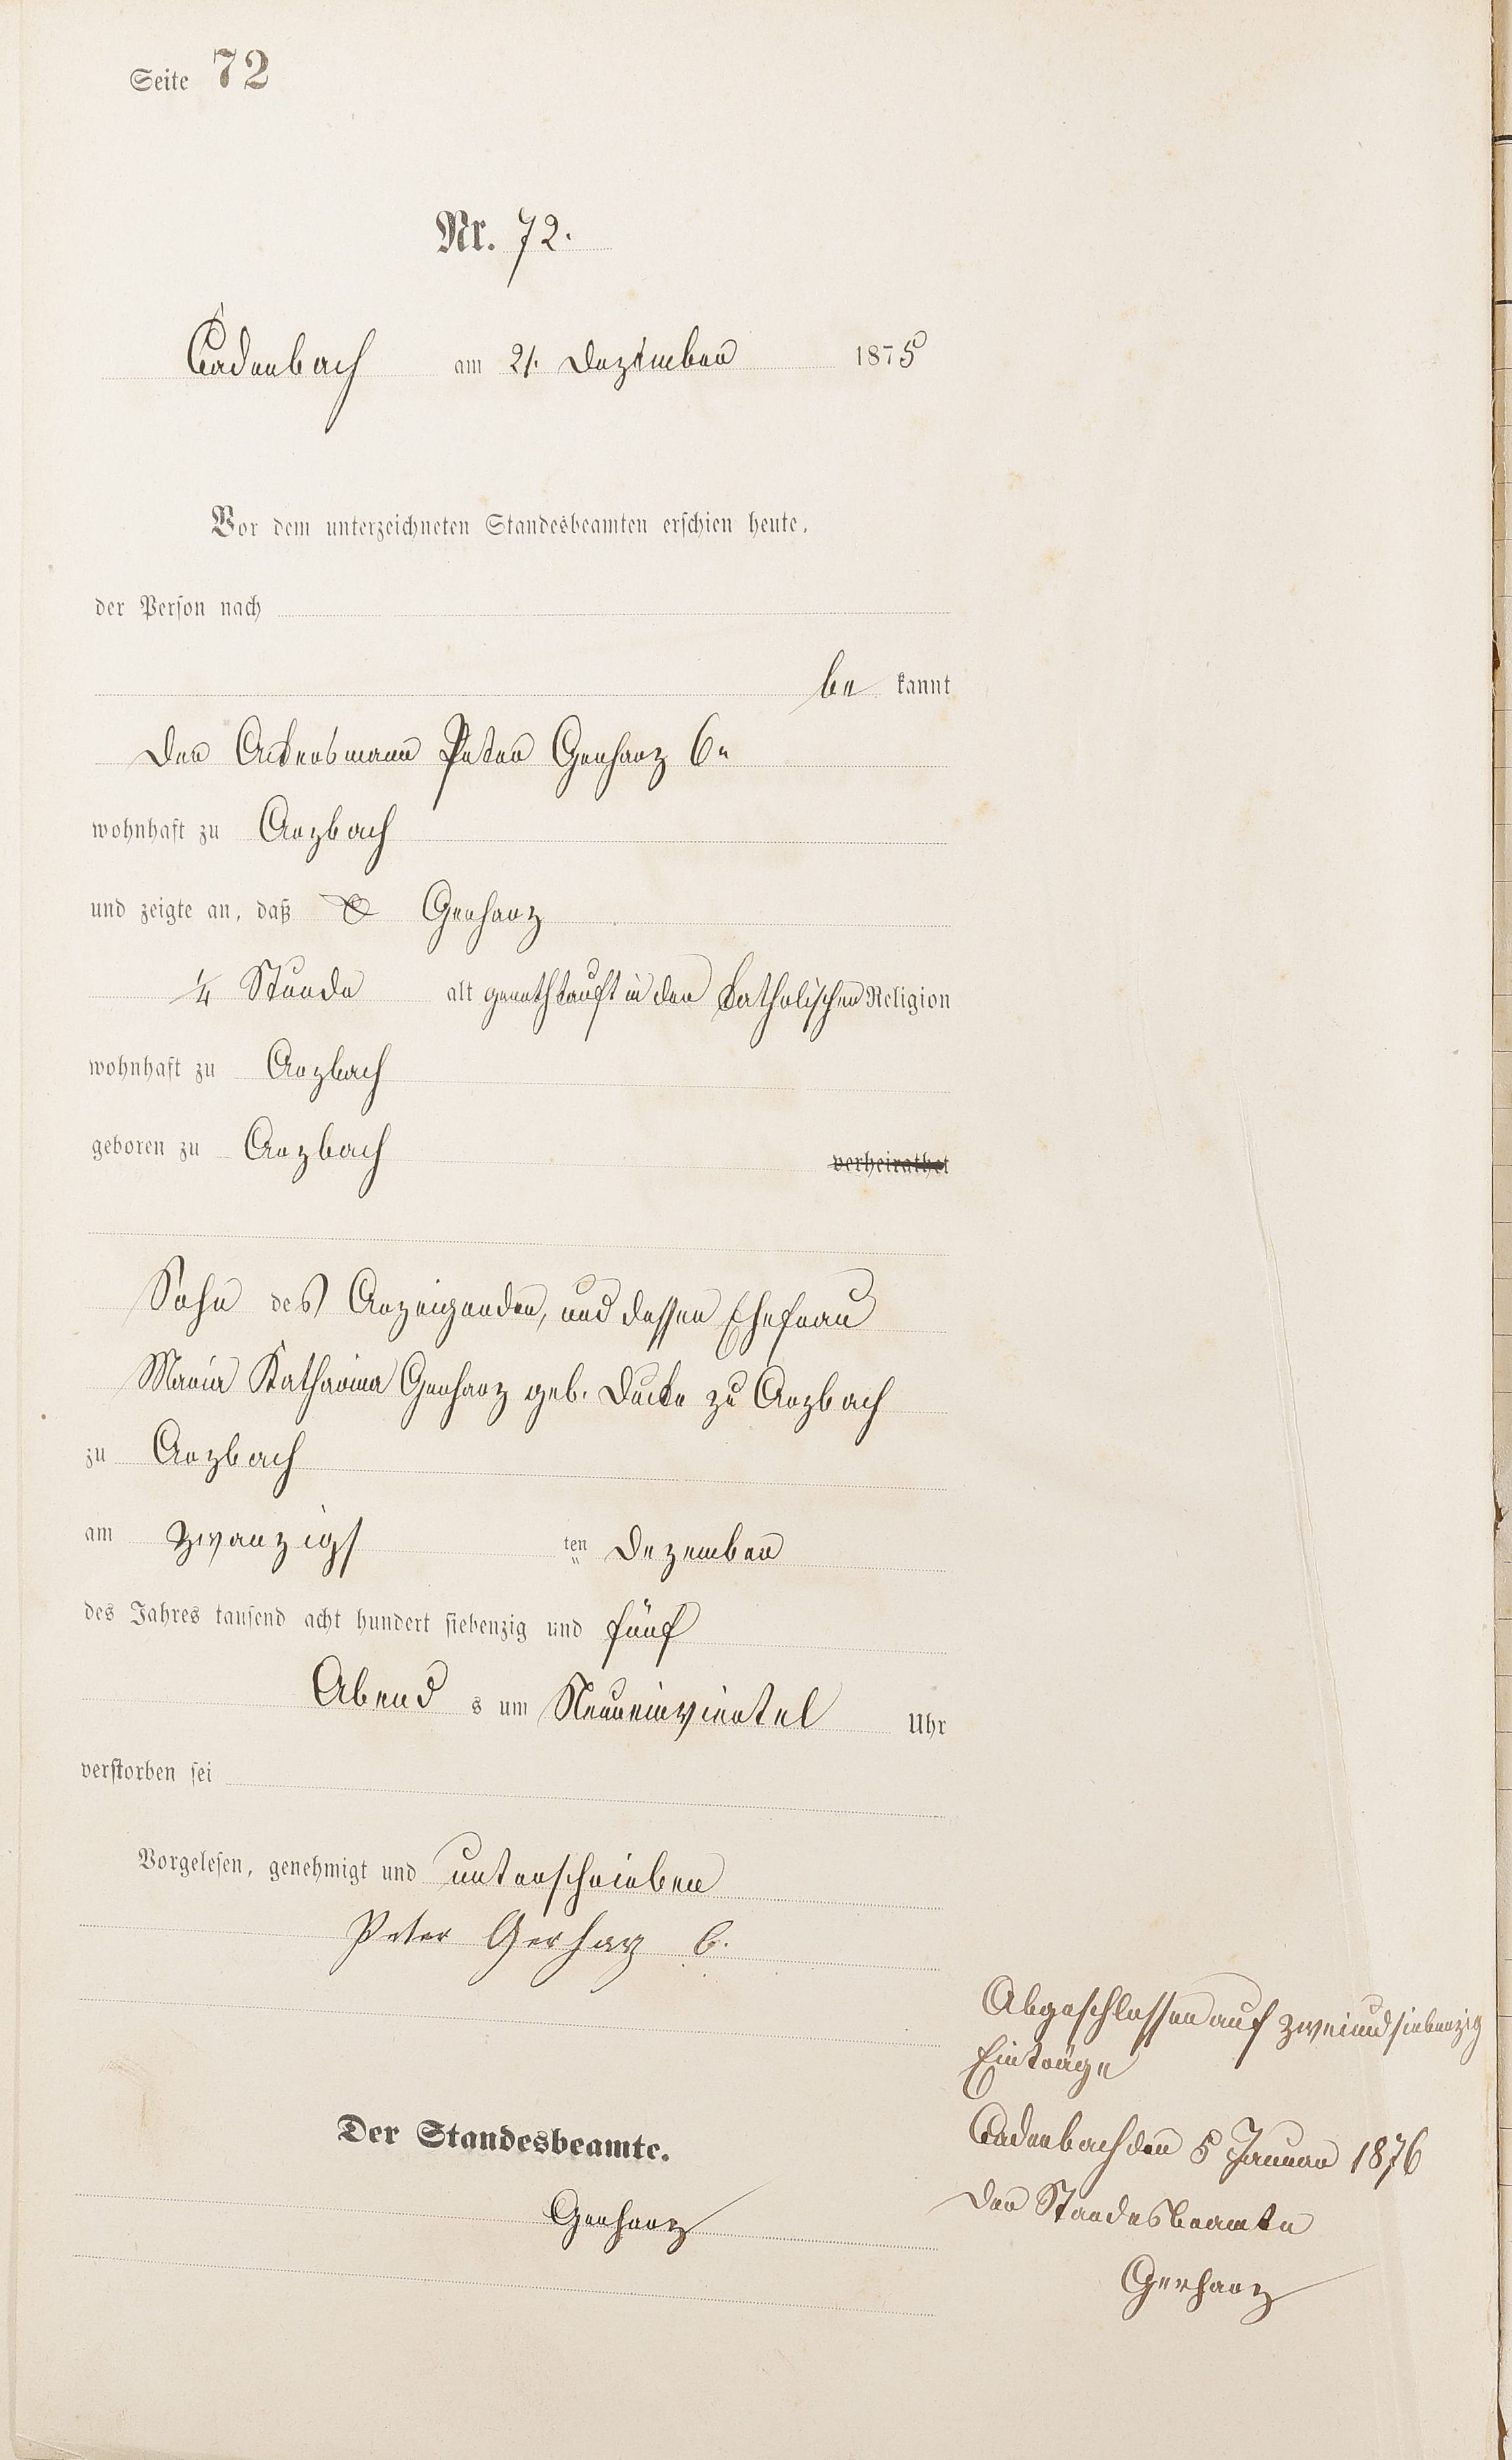 Seite 72
Nr. 72.
Cadenbach am 21. Dezember 1875
Vor dem unterzeichneten Standesbeamten erschien heute,
der Person nach
be kannt
der Ackersmann Peter Gerharz 6r
wohnhaft zu Arzbach
und zeigte an, daß Gerharz
1/4 Stunde alt genothtauft in der katholischen Religion
wohnhaft zu Arzbach
geboren zu Arzbach verheirathet
Sohn des Anzeigenden, und dessen Ehefrau
Maria Katharina Gerharz geb. Ducke zu Arzbach
zu Arzbach
am zwanzigs ten Dezember
des Jahres tausend acht hundert siebenzig und fünf
Abend s um Neuneinviertel Uhr
verstorben sei
Vorgelesen, genehmigt und unterschrieben
Peter Gerharz 6.
Der Standesbeamte.
Gerharz
Abgeschlossen auf zweiundsiebenzig
Einträge
Cadenbach den 5 Januar 1876
Der Standesbeamte
Gerharz